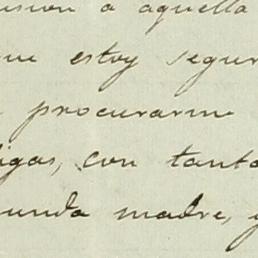 usion a aquella
que estoy segur
procurarme
ligas, con tanta
unda madre, y